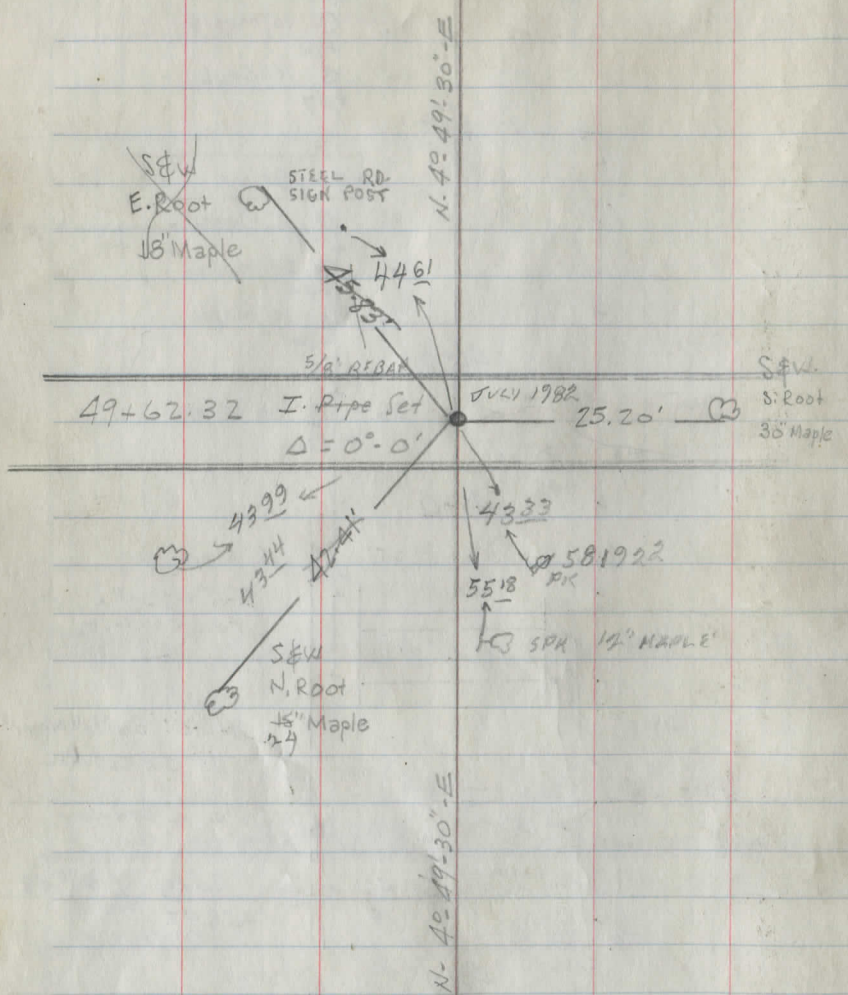 N. 4°-49'-30"-E
S&W
E. Root
18" Maple
STEEL RD.
SIGN POST
45.83'
44 61
5/8" REBAR
49+62.32 I. Pipe Set
Δ = 0°-0'
JULY 1982
25.20'
S&W.
S. Root
30" Maple
43 99
43 44
42.41'
43 33
581922
PK
55 18
SPK 12" MAPLE
S&W
N. Root
15" Maple
24
N- 4°-49'-30"-E